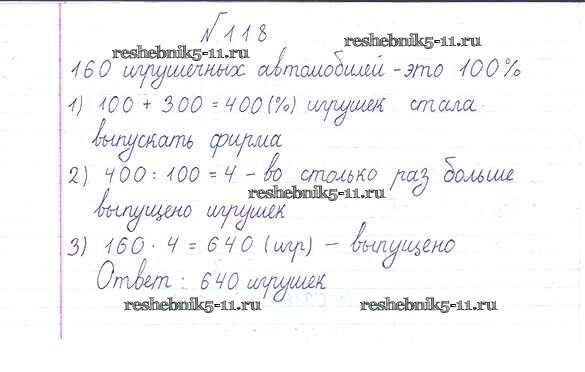 №118
reshebnik5-11.ru reshebnik5-11.ru
160 игрушечных автомобилей - это 100%
1) 100 + 300 = 400 (%) игрушек стала
выпускать фирма
2) 400 : 100 = 4 - во столько раз больше
reshebnik5-11.ru
выпущено игрушек
3) 160 · 4 = 640 (игр) - выпущено
Ответ: 640 игрушек
reshebnik5-11.ru reshebnik5-11.ru